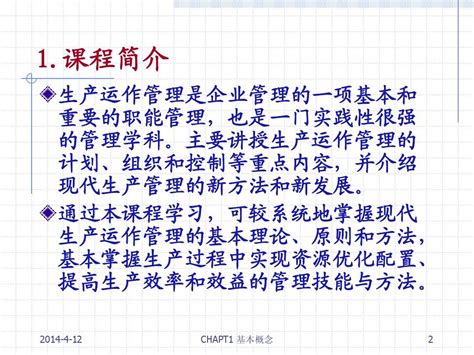 1.课程简介
生产运作管理是企业管理的一项基本和
重要的职能管理，也是一门实践性很强
的管理学科。主要讲授生产运作管理的
计划、组织和控制等重点内容，并介绍
现代生产管理的新方法和新发展。
通过本课程学习，可较系统地掌握现代
生产运作管理的基本理论、原则和方法，
基本掌握生产过程中实现资源优化配置、
提高生产效率和效益的管理技能与方法。
2014-4-12 CHAPT1 基本概念 2